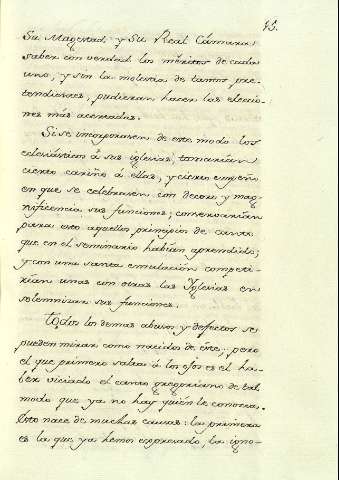 43.
Su Magestad, y Su Real Cámara,
saber con verdad los méritos de cada
uno, y sin la molestia de tantos pre-
tendientes, pudieran hacer las eleccio-
nes más acertadas.
Si se incorporasen de este modo los
eclesiásticos á sus iglesias, tomarían
cierto cariño á ellas, y cierto empeño
en que se celebrasen con decoro y mag-
nificencia sus funciones; conservarían
para esto aquellos principios de canto
que en el seminario habían aprendido;
y con una santa emulación competi-
rían unas con otras las Yglesias en
solemnizar sus funciones.
Todos los demas abusos y defectos se
pueden mirar como nacidos de éste, pero
el que primero salta á los ojos es el ha-
ber viciado el canto gregoriano de tal
modo que ya no hay quién le conozca.
Esto nace de muchas causas: la primera
es la que ya hemos expresado, la igno-